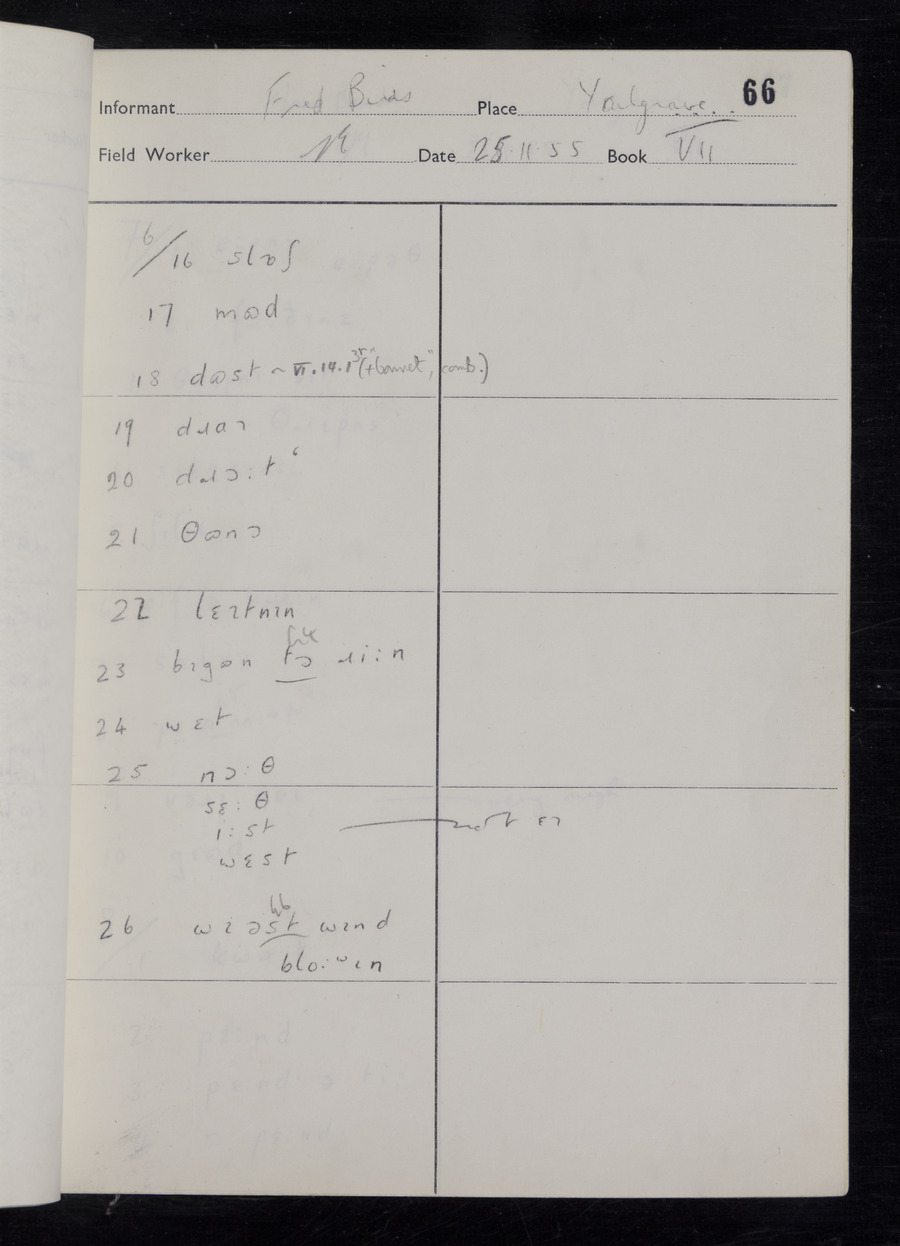 66
Informant Fred Birds Place Youlgrave
Field Worker Date 25.11.55 Book VII
6/16 slɷʃ
17 mɷd
18 dɷst ~ VI.14.1 (+"bonnet", comb.)
19 dɹaɪ
20 dɹɔ:t
21 θɷnə
22 lɛɪtnɪn
23 bɪgɷn tə ɹi:n
24 wɛt
25 nɔ:θ
sɛ:θ
i:st not ɛɪ
wɛst
26 wɪəst wɪnd
blɔ:wɪn